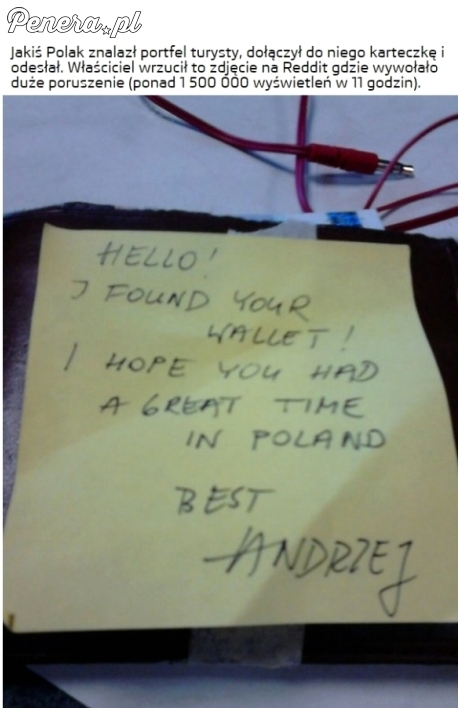 Penera.pl
Jakiś Polak znalazł portfel turysty, dołączył do niego karteczkę i
odesłał. Właściciel wrzucił to zdjęcie na Reddit gdzie wywołało
duże poruszenie (ponad 1 500 000 wyświetleń w 11 godzin).
HELLO!
I FOUND YOUR
WALLET!
I HOPE YOU HAD
A GREAT TIME
IN POLAND
BEST
ANDRZEJ